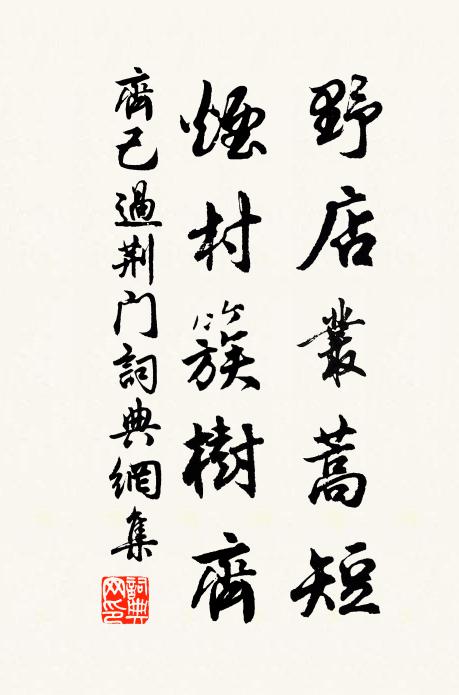 野店叢蒿短
煙村簇樹齊
齊己過荆门詞典網集
詞典网印